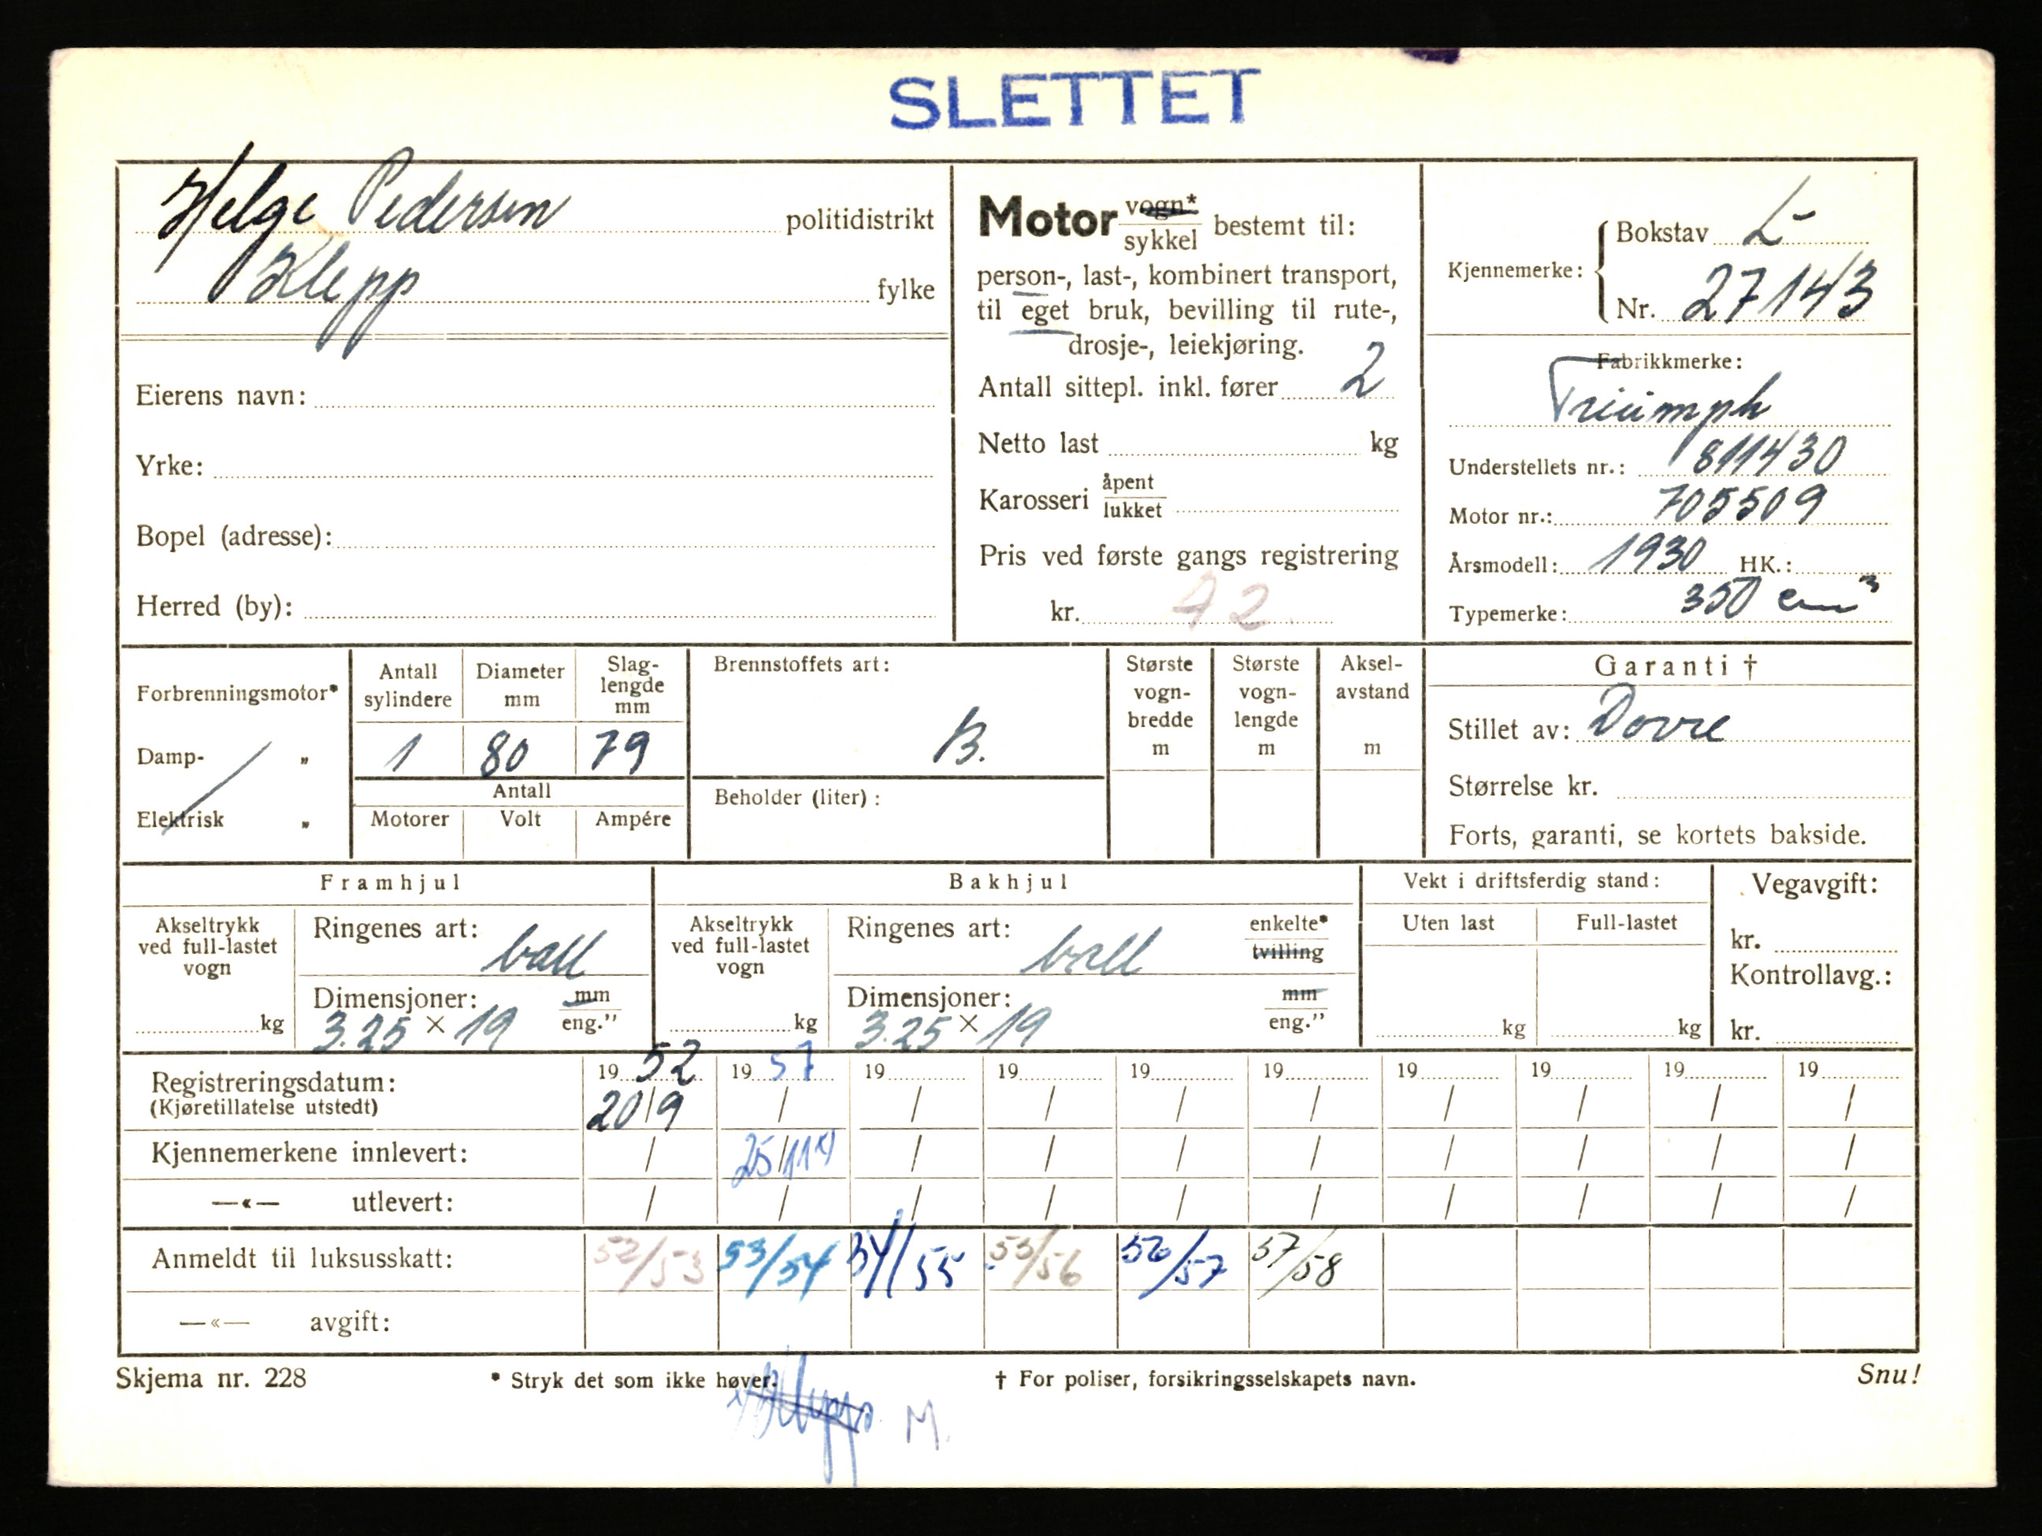 SLETTET
Helge Pedersen politidistrikt
Klepp fylke
Eierens navn:
Yrke:
Bopel (adresse):
Herred (by):
Motor vogn* sykkel bestemt til:
person-, last-, kombinert transport,
til eget bruk, bevilling til rute-,
drosje-, leiekjøring.
Antall sittepl. inkl. fører 2
Netto last kg
Karosseri åpent lukket
Pris ved første gangs registrering
kr. 42
Kjennemerke: Bokstav L-
Nr. 27143
Fabrikkmerke:
Triumph
Understellets nr.: 811430
Motor nr.: 705509
Årsmodell: 1930 HK.:
Typemerke: 350 cm³
Forbrenningsmotor*
Damp- „
Elektrisk „
Antall sylindere Diameter mm Slag-lengde mm
1 80 79
Antall
Motorer Volt Ampére
Brennstoffets art:
B.
Beholder (liter):
Største vogn-bredde m
Største vogn-lengde m
Aksel-avstand m
Garanti †
Stillet av: Dovre
Størrelse kr.
Forts, garanti, se kortets bakside.
Framhjul
Akseltrykk ved full-lastet vogn
kg
Ringenes art: ball
Dimensjoner: mm eng."
3.25 × 19
Bakhjul
Akseltrykk ved full-lastet vogn
kg
Ringenes art: ball enkelte* tvilling
Dimensjoner: mm eng."
3.25 × 19
Vekt i driftsferdig stand:
Uten last Full-lastet
kg kg
Vegavgift:
kr.
Kontrollavg.:
kr.
19 52 19 57 19 19 19 19 19 19 19 19
Registreringsdatum:
(Kjøretillatelse utstedt) 20/9 / / / / / / / / /
Kjennemerkene innlevert: / 25/11 x) / / / / / / / /
—«— utlevert: / / / / / / / / / /
Anmeldt til luksusskatt: 52/53 53/54 54/55 55/56 56/57 57/58
—«— avgift:
Skjema nr. 228 * Stryk det som ikke høver. † For poliser, forsikringsselskapets navn. Snu!
M.